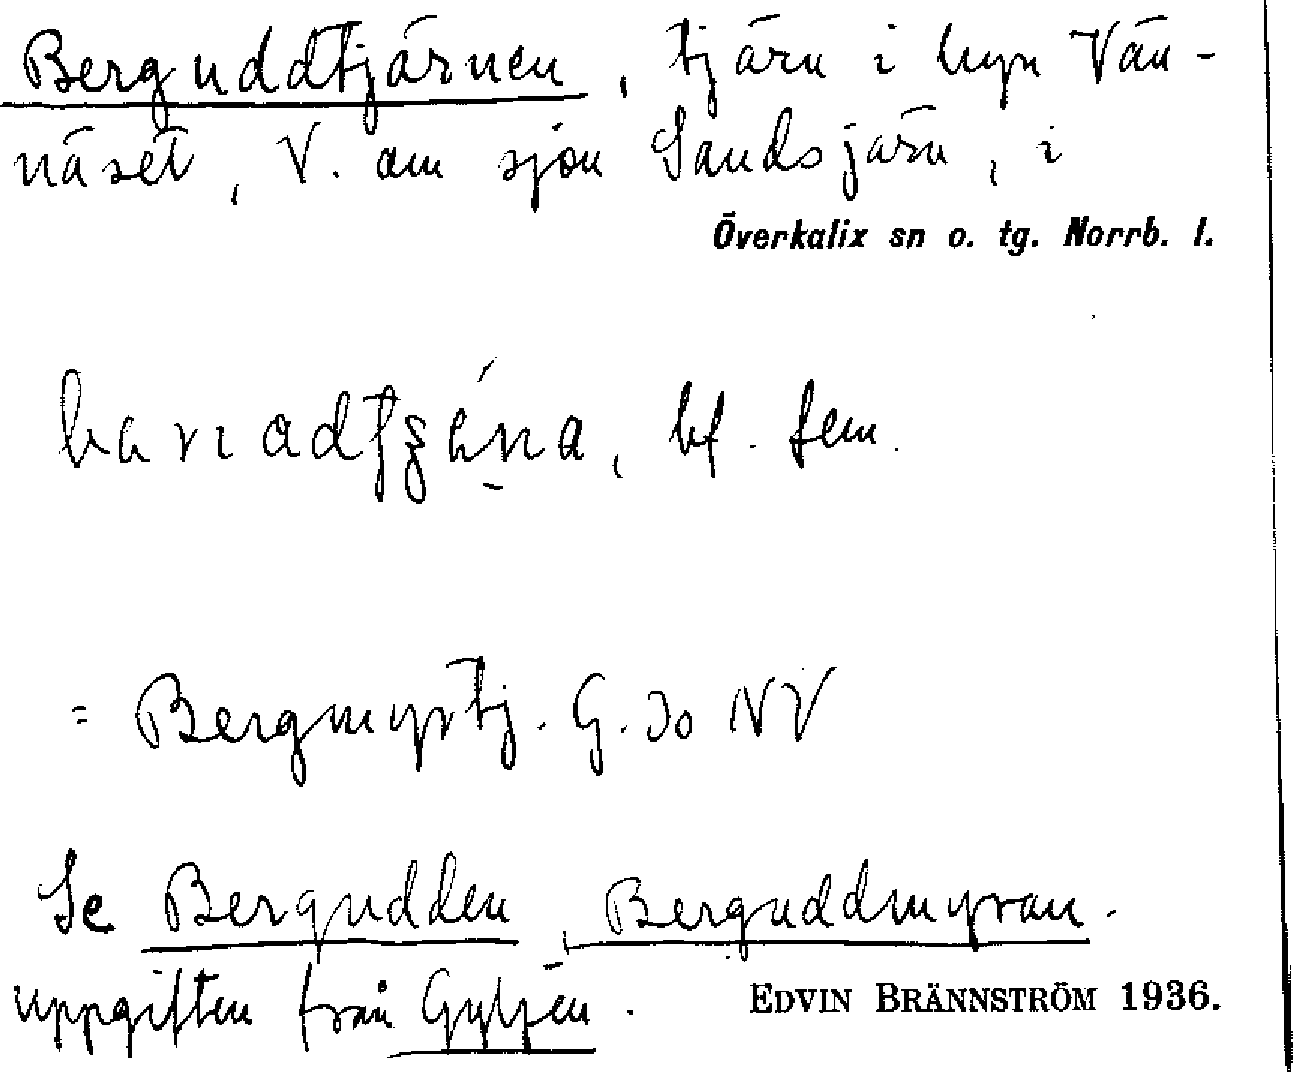 Berguddtjärnen, tjärn i byn Vän-
näset, V. om sjön Sandsjärn, i
Överkalix sn o. tg. Norrb. l.
bf. fem.
= Bergmyrtj. G. 30 NV
Se Bergudden, Berguddmyran.
uppgiften från Gyljen.
EDVIN BRÄNNSTRÖM 1936.